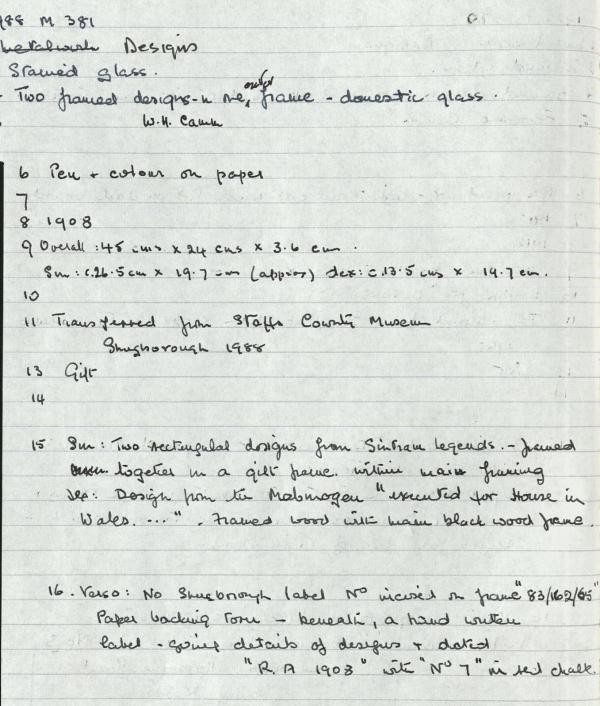 988 M 381
Designs
Stained glass.
- Two framed designs - in one outer frame - domestic glass.
W.H. Camm
6 Pen + colour on paper
7
8 1908
9 Overall : 45 cms x 24 cms x 3.6 cm.
Sin : c.26.5cm x 19.7 cm (approx) dex: c.13.5 cms x 19.7 cm.
10
11 Transferred from Staffs County Museum
Shugborough 1988
13 Gift
14
15 Sin : Two rectangular designs from Sintram legends. - framed
together in a gilt frame within main framing
Dex: Design from the Mabinogen "executed for House in
Wales. ..." . Framed wood with main black wood frame.
16. Verso: No Shugborough label No incised on frame "83/162/65"
Paper backing torn - beneath, a hand written
label - giving details of designs + dated
"R.A 1903" with "No 7" in red chalk.